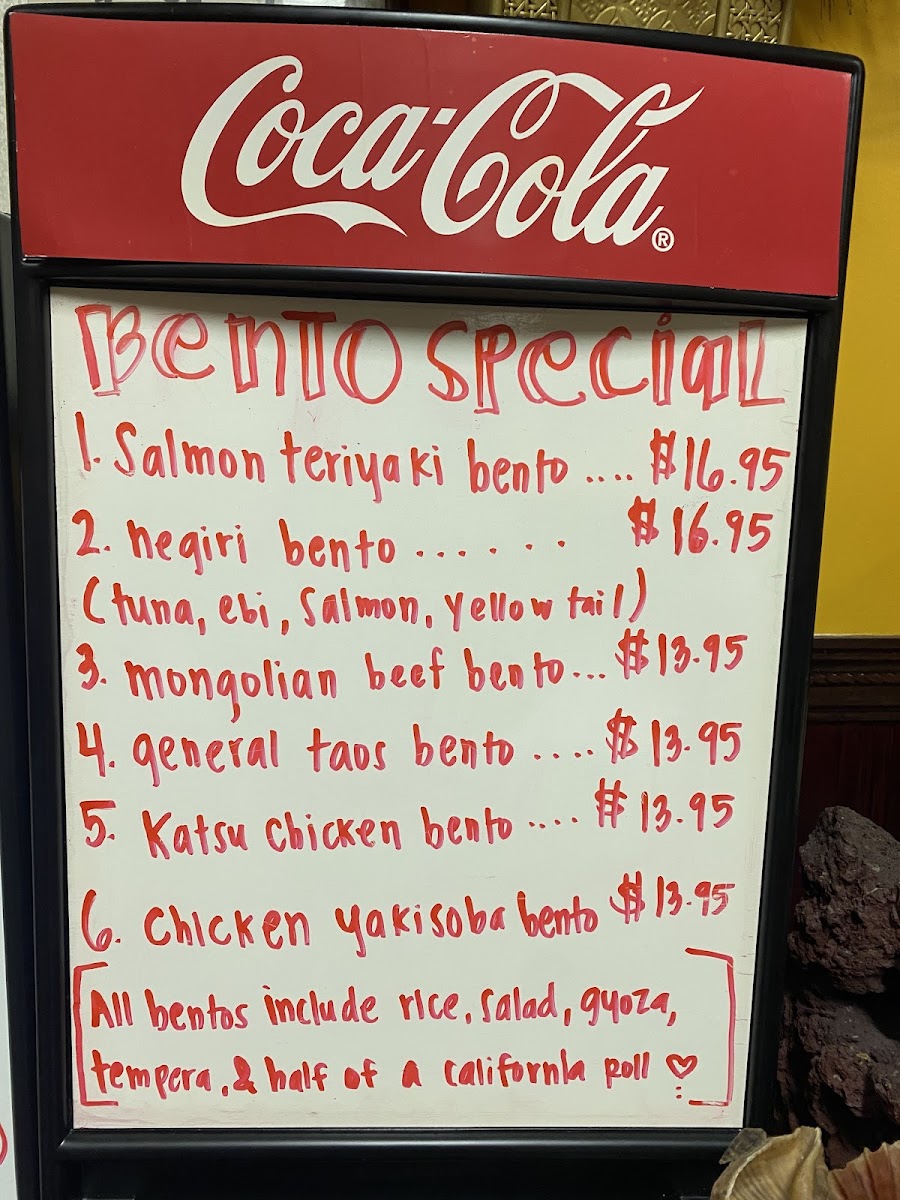 Coca-Cola®
Bento Special
1. Salmon teriyaki bento .... $16.95
2. negiri bento ...... $16.95
(tuna, ebi, salmon, yellow tail)
3. mongolian beef bento... $13.95
4. general taos bento .... $13.95
5. Katsu chicken bento .... $13.95
6. chicken yakisoba bento $13.95
[All bentos include rice, salad, gyoza,
tempera, & half of a california roll ♡]